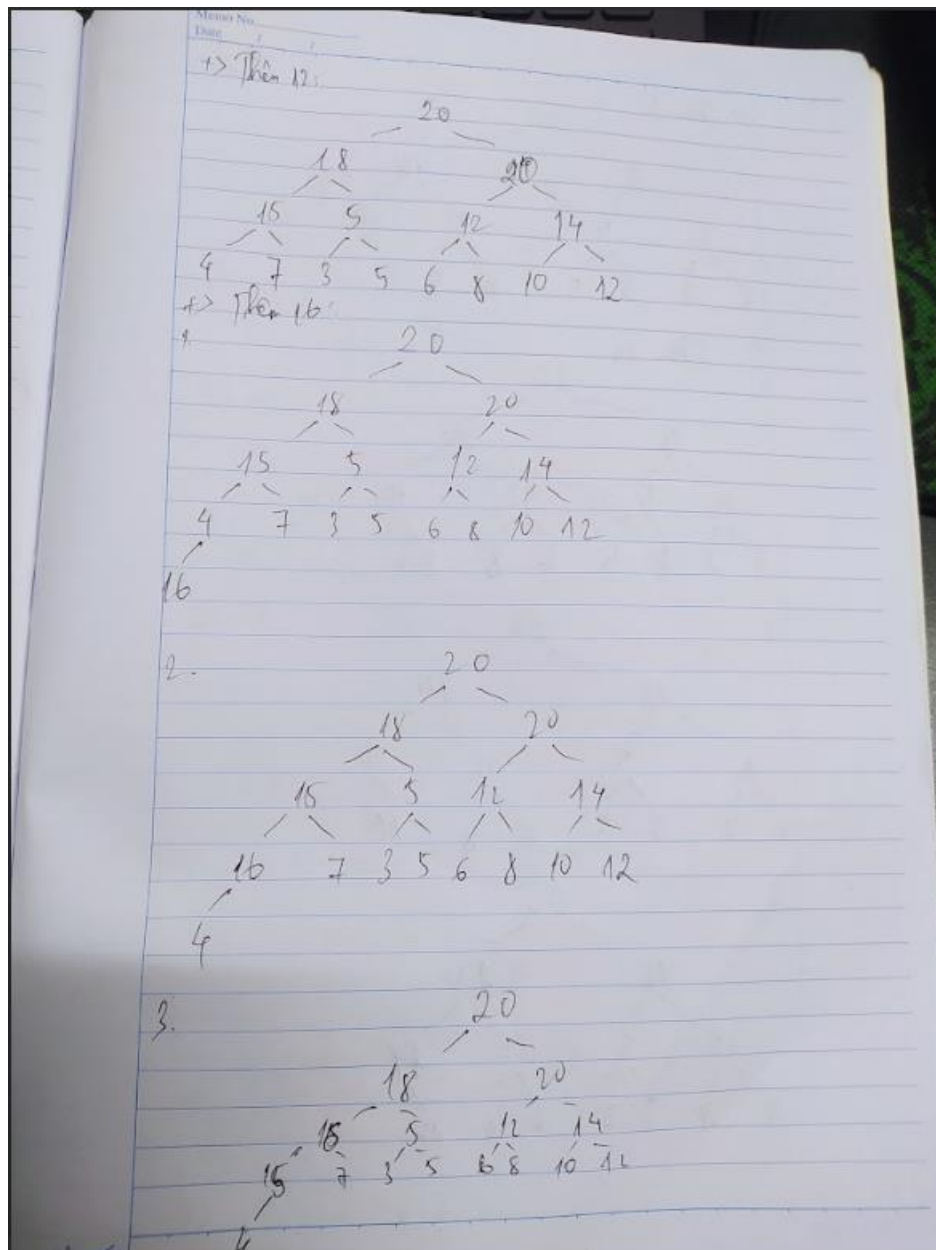 Memo No.
Date / /
+> Thêm 12:
20
18 20
15 5 12 14
4 7 3 5 6 8 10 12
+> Thêm 16:
1.
20
18 20
15 5 12 14
4 7 3 5 6 8 10 12
16
2.
20
18 20
15 5 12 14
16 7 3 5 6 8 10 12
4
3.
20
18 20
16 5 12 14
15 7 3 5 6 8 10 12
4